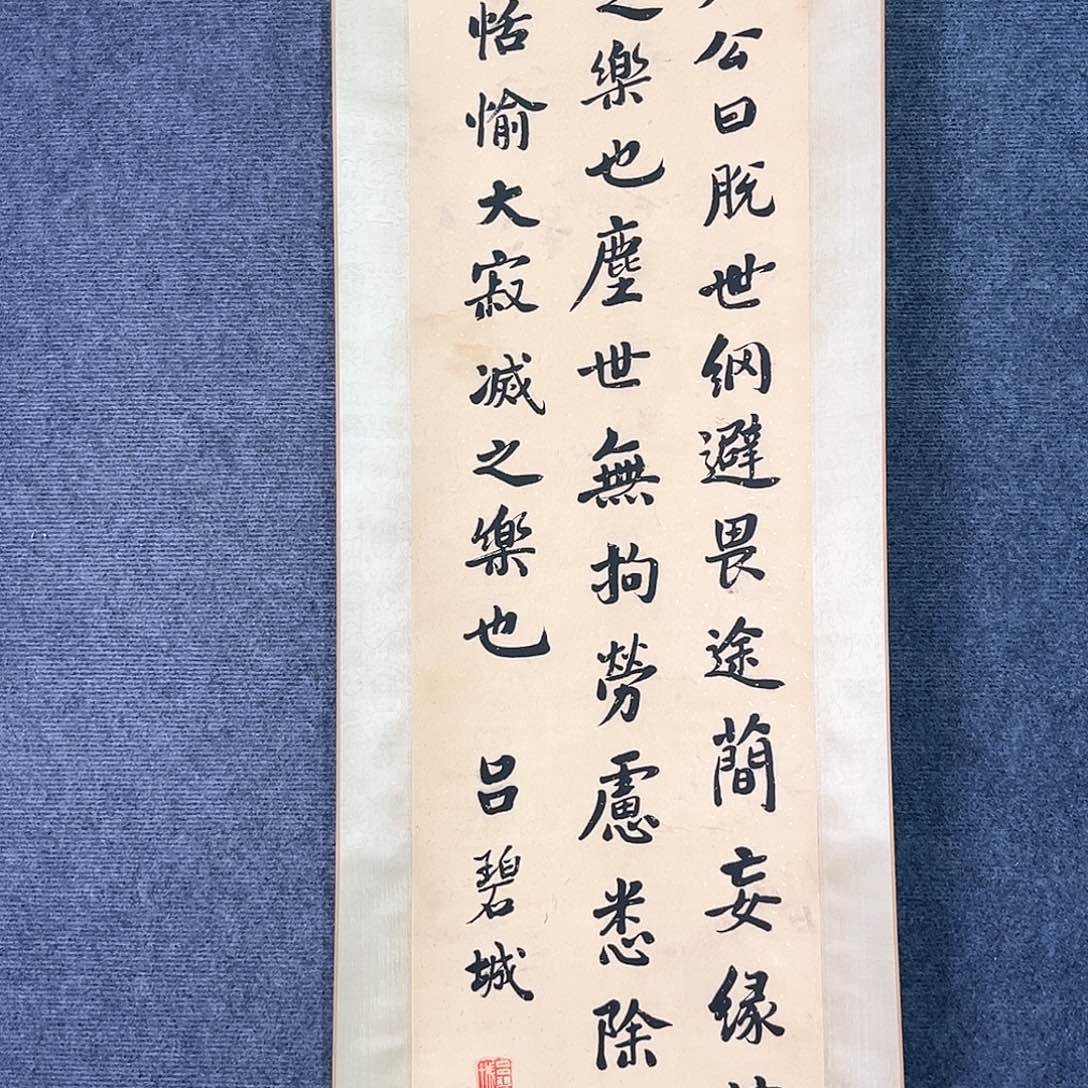 公曰脫世網避畏途簡妄緣
之樂也塵世無拘勞慮悉除
恬愉大寂滅之樂也
呂碧城